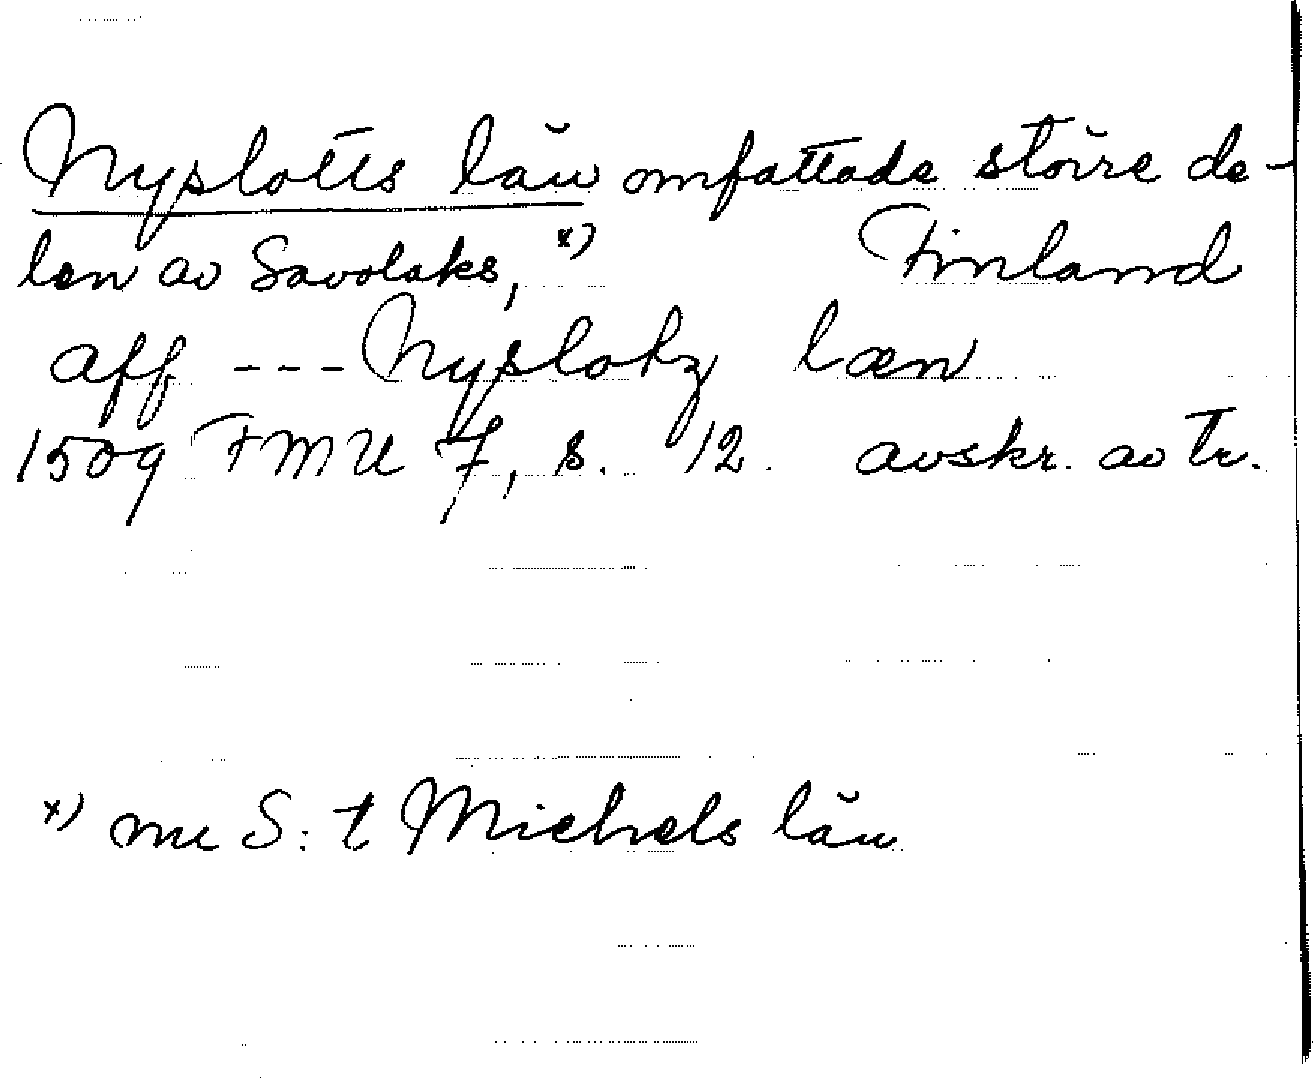 Nyslotts län omfattade större de-
len av Savolaks, x) Finland
aff --- Nyslotz læn
1509 FMU 7, s. 12. avskr. av tr.
x) nu S:t Michels län